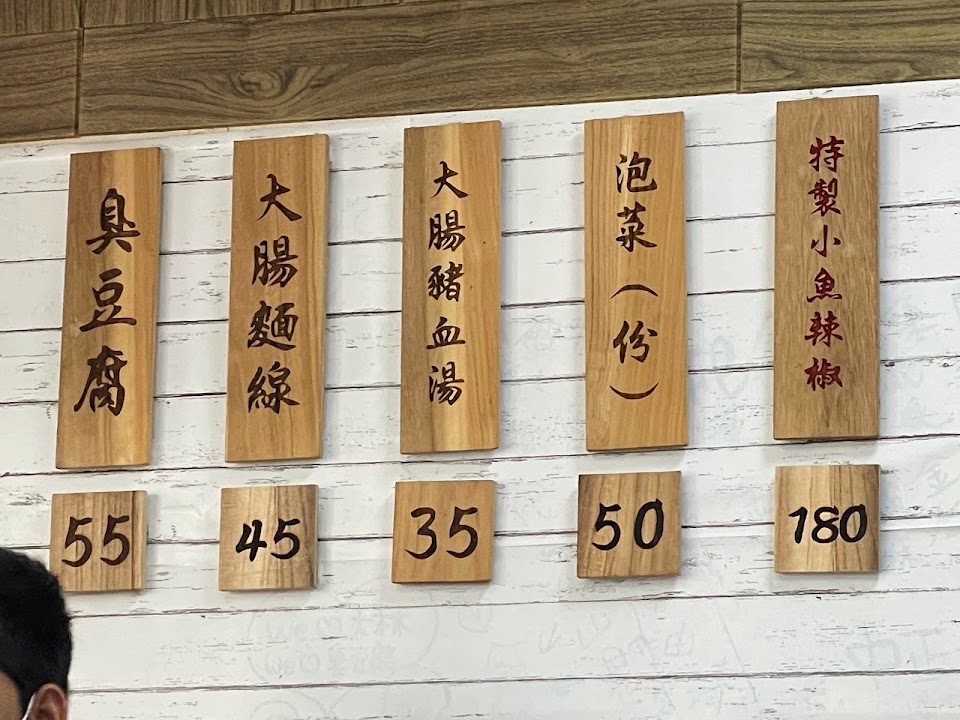 臭豆腐
55
大腸麵線
45
大腸豬血湯
35
泡菜(份)
50
特製小魚辣椒
180